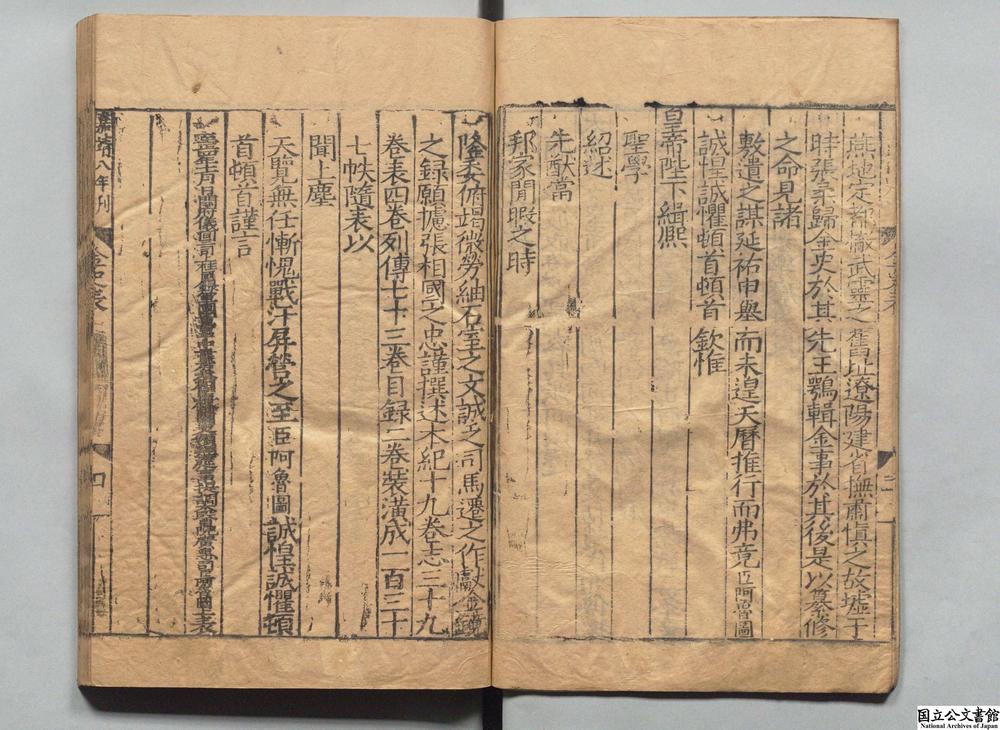 燕地定都藏武靈之舊址遼陽建省撫肅慎之故墟于
時張柔歸金史於其先王鶚輯金事於其後是以纂修
之命見諸
敷遺之謀延祐申舉而未遑天曆推行而弗竟臣阿魯圖
誠惶誠懼頓首頓首欽惟
皇帝陛下緝熙
聖學
紹述
先猷當
邦家閒暇之時
隆安俯竭微勞紬石室之文誠乏司馬遷之作獻金鏡
之録願攄張相國之忠謹撰述本紀十九卷志三十九
卷表四卷列傳七十三卷目録二卷裝潢成一百三十
七帙隨表以
聞上塵
天覽無任慚愧戰汗屏營之至臣阿魯圖誠惶誠懼頓
首頓首謹言
嘉靖八年刊
金史表
四
国立公文書館
National Archives of Japan